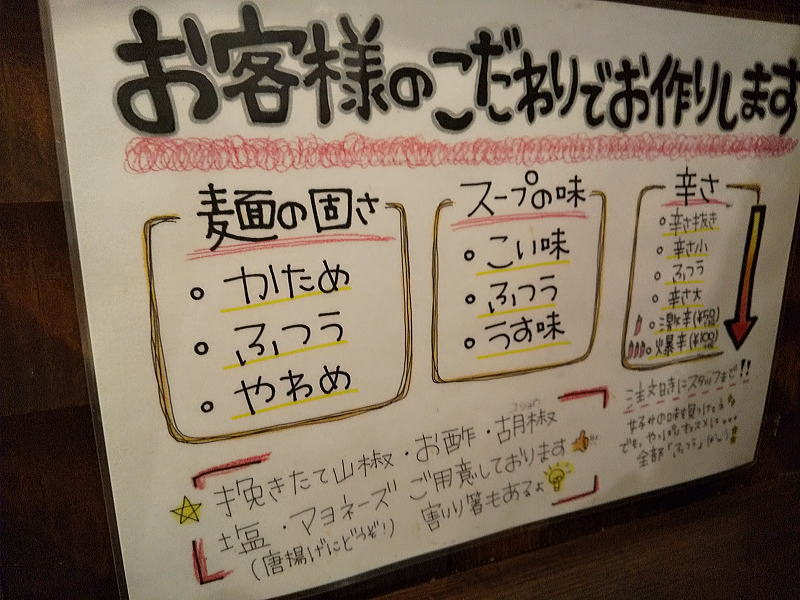 お客様のこだわりでお作りします
麺の固さ
かため
ふつう
やわめ
スープの味
こい味
ふつう
うす味
辛さ
辛さ抜き
辛さ小
ふつう
辛さ大
激辛(¥50)
爆辛(¥100)
注文時にスタッフまで!!
全部「ふつう」
コショウ
☆挽きたて山椒・お酢・胡椒
塩・マヨネーズ ご用意しております
(唐揚げにどうぞ!) 割り箸もあるよ